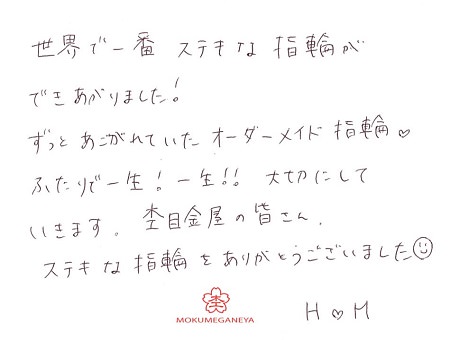 世界で一番 ステキな 指輪が
できあがりました!
ずっと あこがれていた オーダーメイド 指輪♡
ふたりで一生! 一生!! 大切にして
いきます。 杢目金屋の皆さん、
ステキな指輪をありがとうございました☺
杢
MOKUMEGANEYA
H♡M